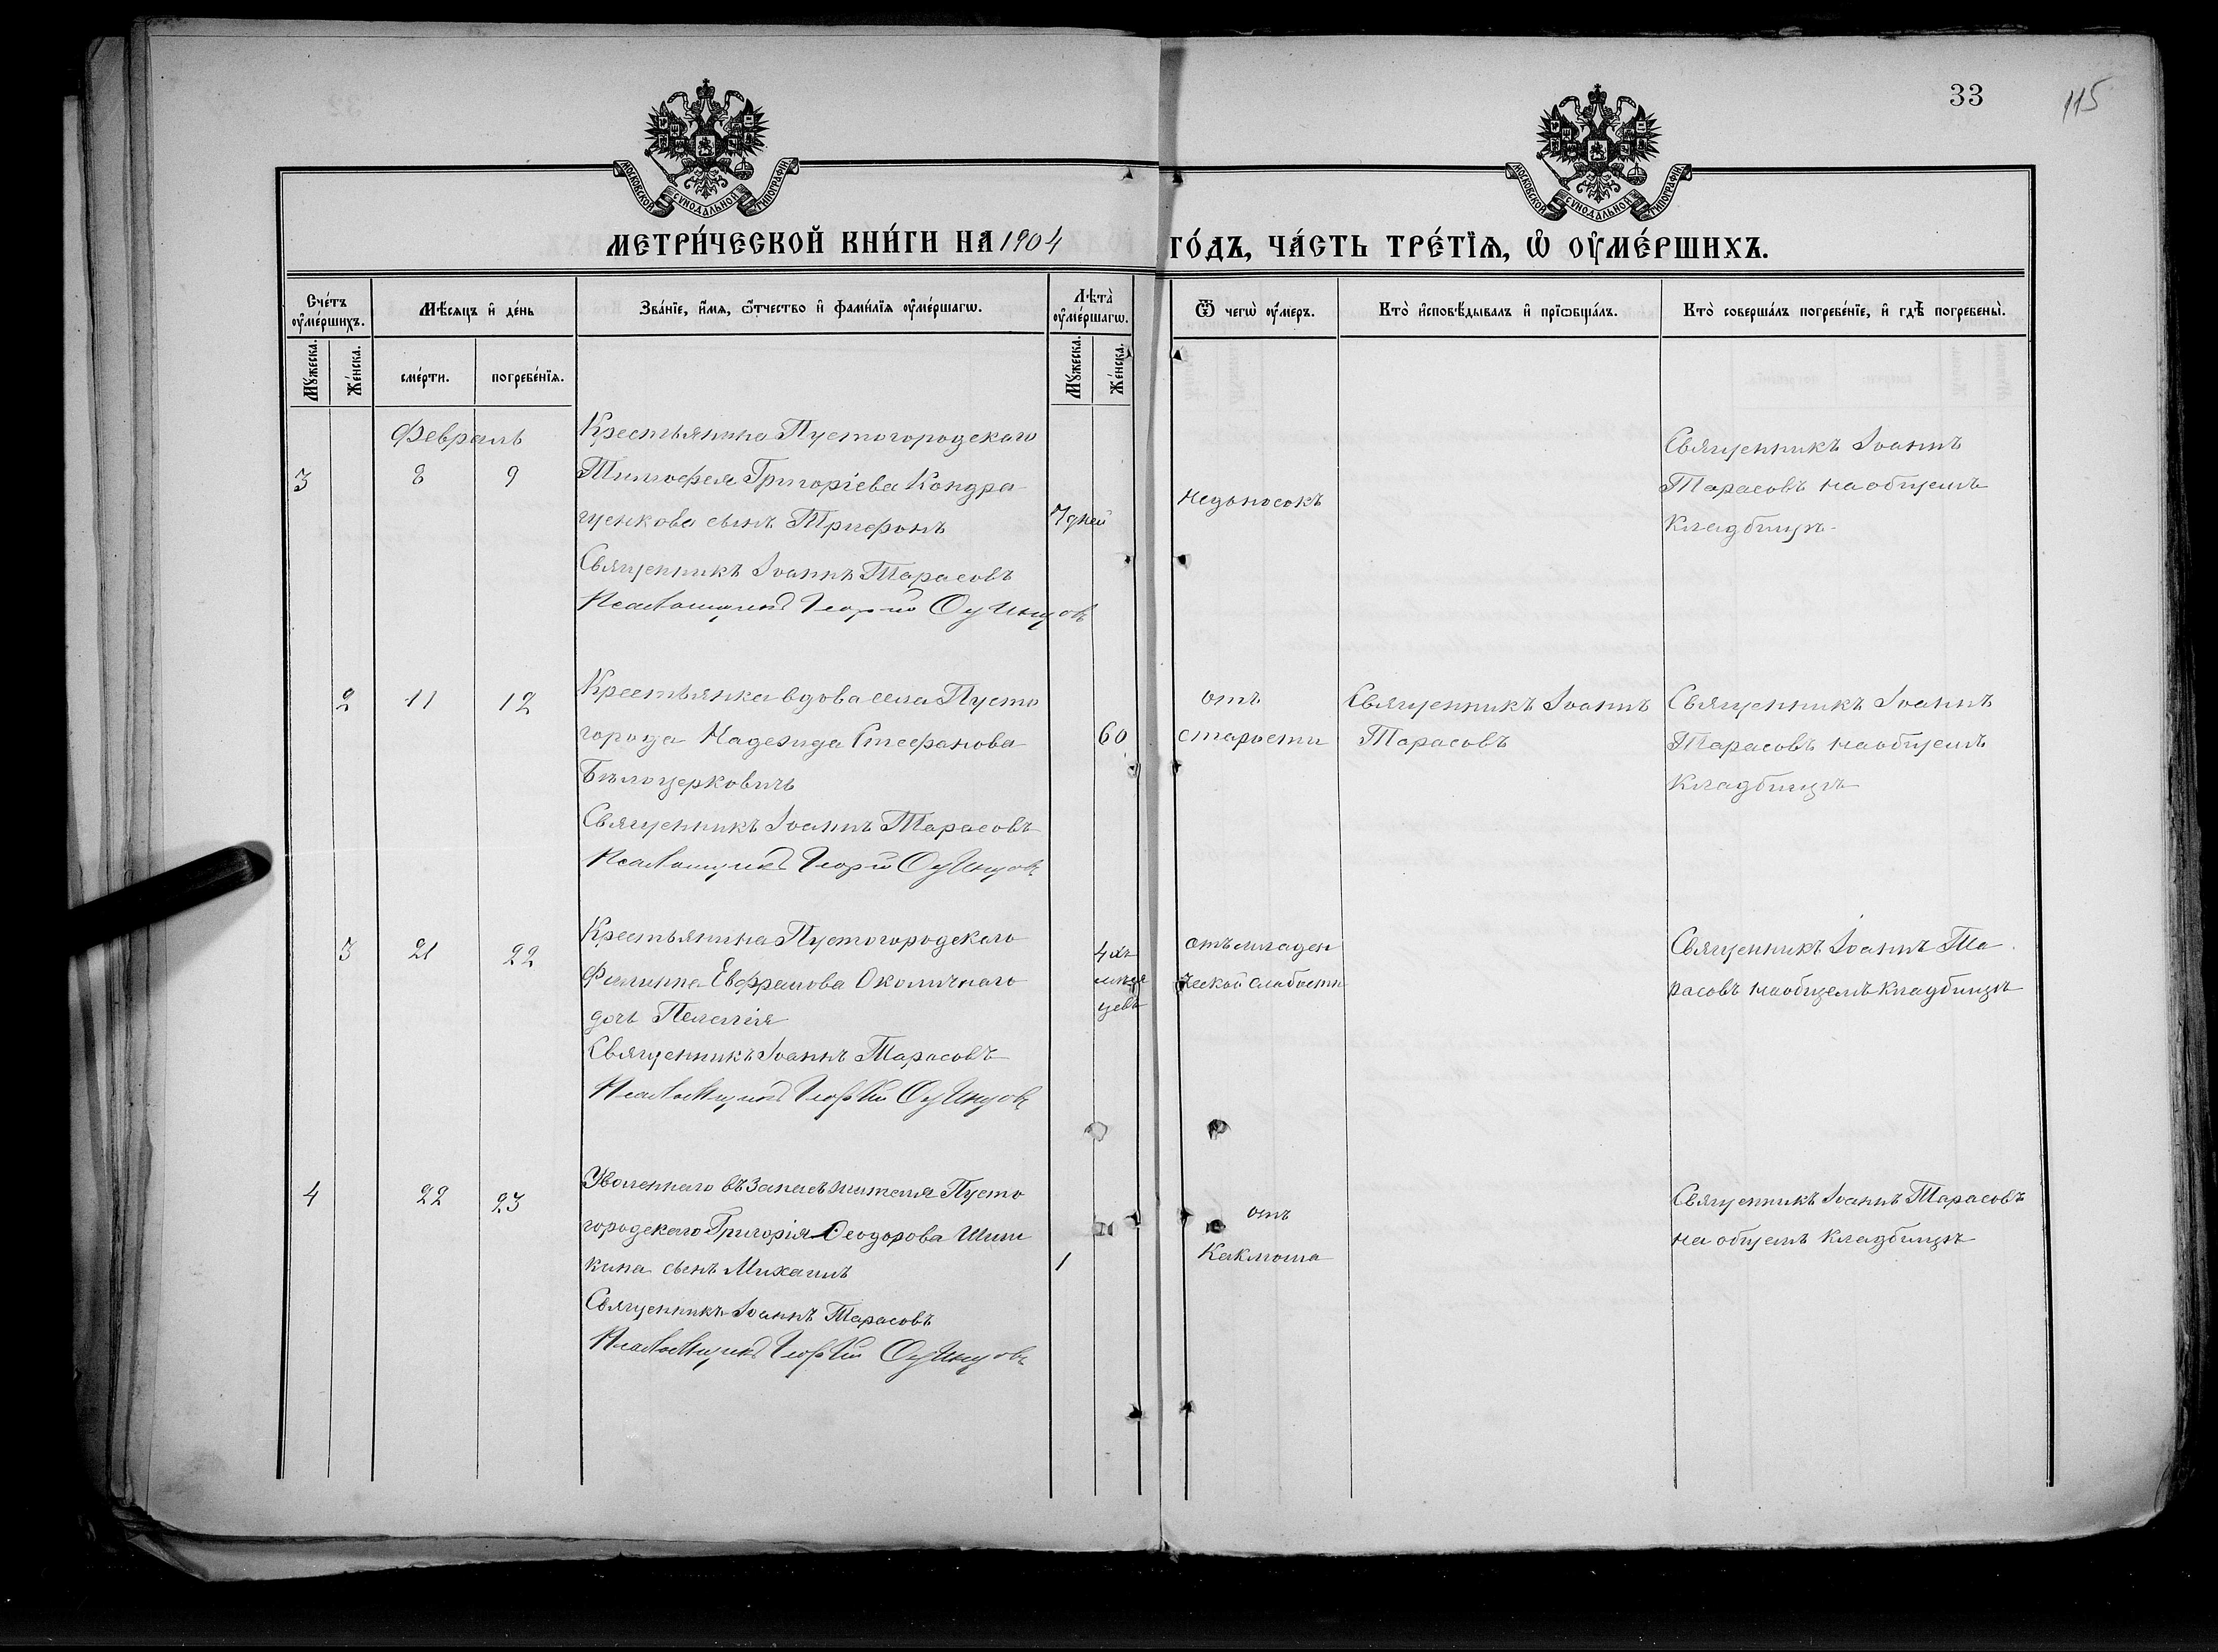 33
115
МОСКОВСКОЙ СУНОДАЛЬНОЙ ТИПОГРАФІИ.
МОСКОВСКОЙ СУНОДАЛЬНОЙ ТИПОГРАФІИ.
МЕТРИ́ЧЕСКОЙ КНИ́ГИ НА 1904 ГО́ДЪ, ЧА́СТЬ ТРЕ́ТЇѦ, Ѡ҆ ОУ҆МЕ́РШИХЪ.
Сче́тъ оу҆ме́ршихъ.
Мѣ́сяцъ и҆ де́нь
Зва́нїе, и҆́мѧ, ѻ҆́тчество и҆ фами́лїѧ оу҆ме́ршагѡ.
Лѣ́та оу҆ме́ршагѡ.
Ѿ чегѡ̀ оу҆́меръ.
Кто̀ и҆сповѣ́дывалъ и҆ прїѡбща́лъ.
Кто̀ соверша́лъ погребе́нїе, и҆ гдѣ̀ погребены̀.
Мꙋ́жеска.
Же́нска.
сме́рти.
погребе́нїѧ.
Мꙋ́жеска.
Же́нска.
Февраль
3
8
9
Крестьянина Пустогородскаго
Тимофея Григоріева Кондра
ценкова сынъ Трифонъ
Священникъ Іоаннъ Тарасовъ
Псаломщикъ Георгій Одинцовъ
7 дней
недоносокъ
Священникъ Іоаннъ
Тарасовъ на общемъ
кладбищѣ
2
11
12
Крестьянка вдова села Пусто
города Надежда Стефанова
Бѣлоцерковичъ
Священникъ Іоаннъ Тарасовъ
Псаломщикъ Георгій Одинцовъ
60
отъ
старости
Священникъ Іоаннъ
Тарасовъ
Священникъ Іоаннъ
Тарасовъ на общемъ
кладбищѣ
3
21
22
Крестьянина Пустогородскаго
Филиппа Евфремова Околичнаго
дочь Пелагія
Священникъ Іоаннъ Тарасовъ
Псаломщикъ Георгій Одинцовъ
4хъ
мѣся
цевъ
отъ младен
ческой слабости
Священникъ Іоаннъ Та
расовъ на общемъ кладбищѣ
4
22
23
Уволеннаго въ запасъ жителя Пусто
городскаго Григорія Ѳеодорова Шиш
кина сынъ Михаилъ
Священникъ Іоаннъ Тарасовъ
Псаломщикъ Георгій Одинцовъ
1
отъ
Каклюша
Священникъ Іоаннъ Тарасовъ
на общемъ кладбищѣ